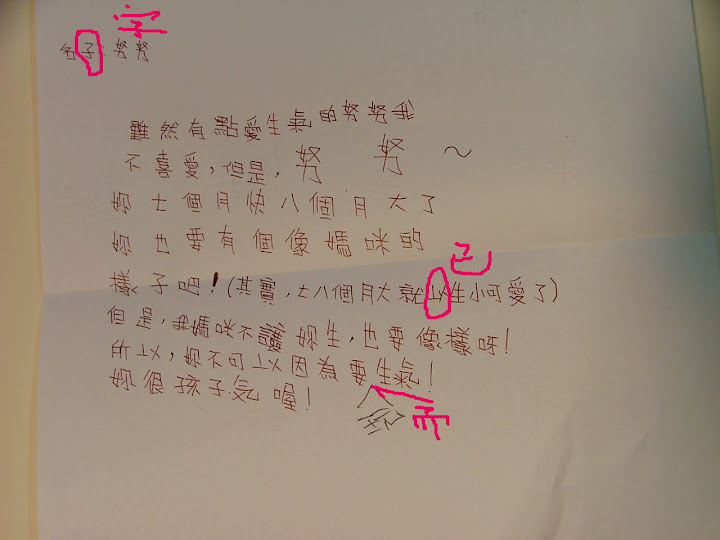 字
名子:努努
雖然有點愛生氣的努努我
不喜愛,但是,努 努~
妳七個月快八個月大了
妳也要有個像媽咪的
已
樣子吧!(其實,七八個月大就以生小可愛了)
但是,我媽咪不讓妳生,也要像樣呀!
所以,妳不可以因為要生氣!
妳很孩子気喔!
而